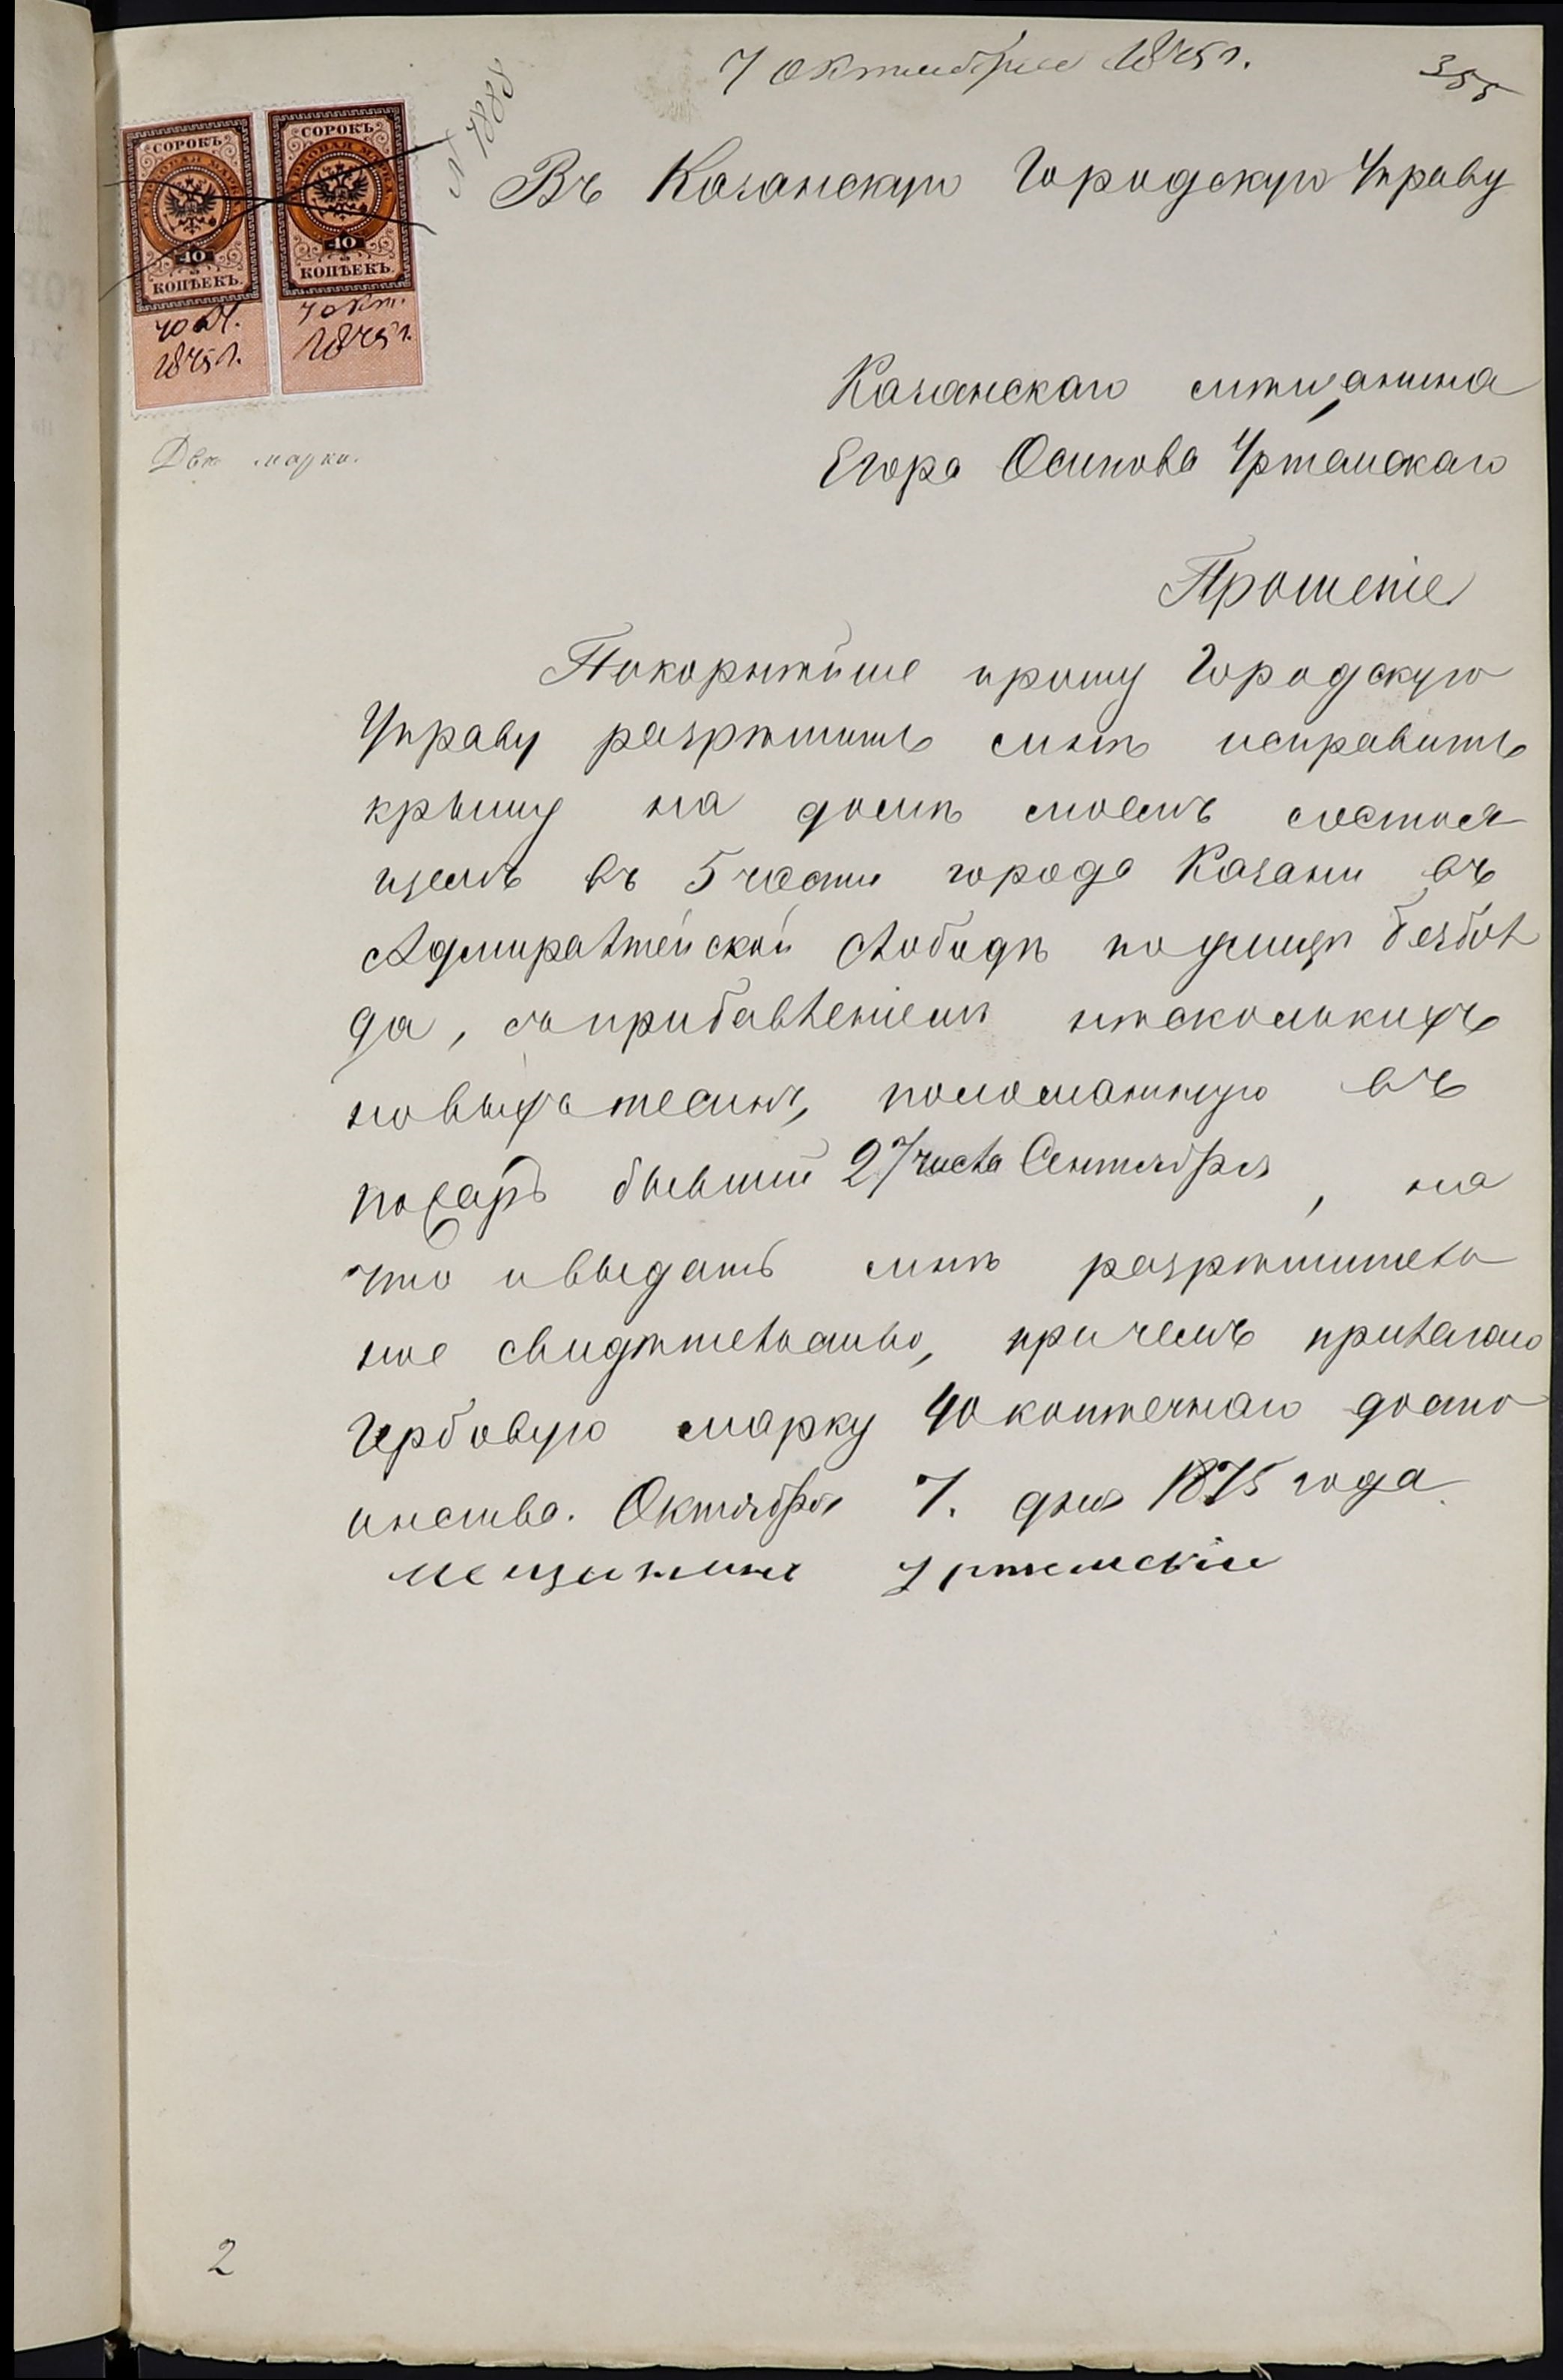 7 октября 1875 г.
355
№ 7888
СОРОКЪ
ГЕРБОВАЯ МАРКА
40
КОПѢЕКЪ.
7 окт.
1875 г.
СОРОКЪ
ГЕРБОВАЯ МАРКА
40
КОПѢЕКЪ.
7 окт.
1875 г.
Двѣ марки.
Въ Казанскую Городскую Управу
Казанскаго мѣщанина
Егора Осипова Уртѣмскаго
Прошеніе
Покорнѣйше прошу Городскую
Управу разрѣшить мнѣ исправить
крышу на домѣ моемъ состоя
щемъ въ 5 части города Казани въ
Адмиралтейской слободѣ по улицѣ безбол
да, съ прибавленіемъ нѣсколькихъ
новыхъ тесинъ, поломанную въ
пожаръ бывшій 27 числа Сентября, на
что и выдать мнѣ разрѣшитель
ное свидѣтельство, при чемъ прилагаю
Гербовую марку 40 копѣечнаго досто
инства. Октября 7. дня 1875 года
мещининъ Уртемскіи
2